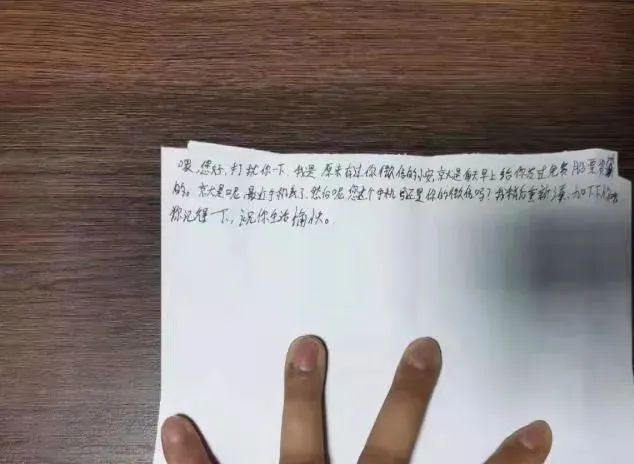 喂,您好,打扰你一下,我是原来有过你微信的小安,就是每天早上给你发过免费股票
的。就是呢最近手机丢了,然后呢,您这个手机号还是你的微信吗?我稍后重新加下
你记得一下,祝你生活愉快。